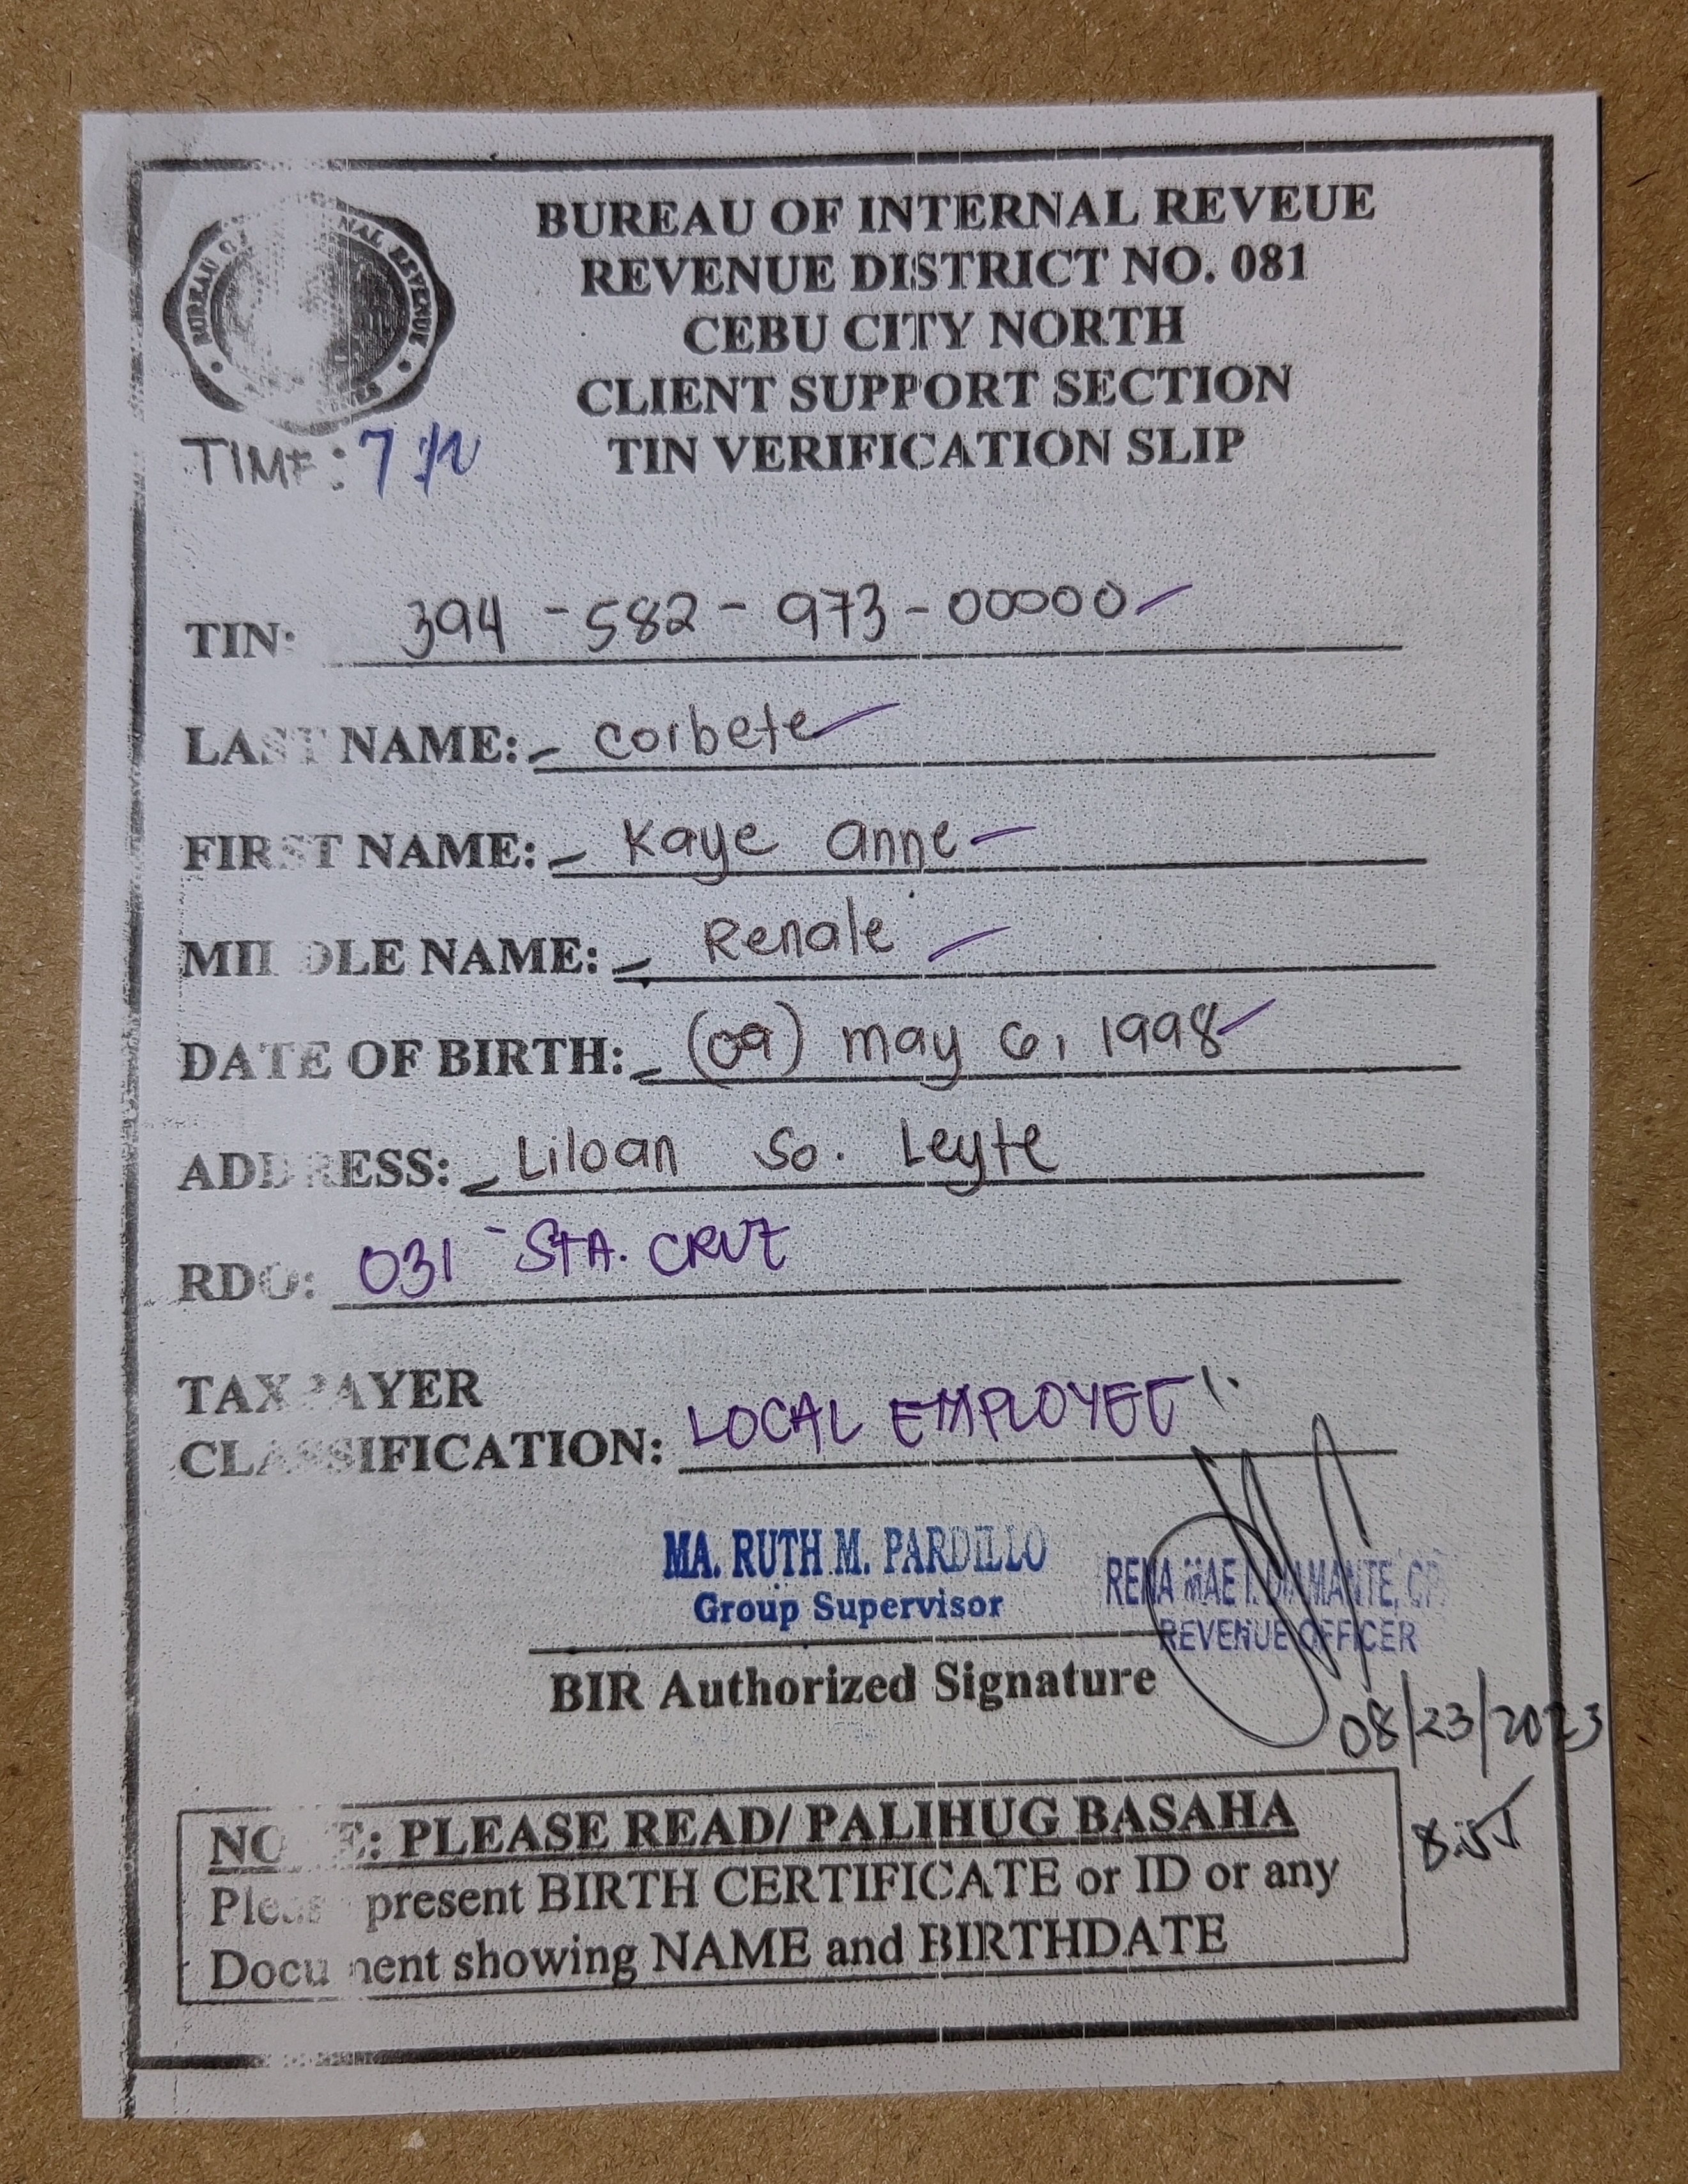 BUREAU OF INTERNAL REVEUE
REVENUE DISTRICT NO. 081
CEBU CITY NORTH
CLIENT SUPPORT SECTION
TIN VERIFICATION SLIP
TIME: 7
TIN: 394-582-973-00000
LAST NAME: Corbete
FIRST NAME: Kaye Anne
MIDDLE NAME: Renale
DATE OF BIRTH: (09) may 6, 1998
ADDRESS: Liloan So. Leyte
RDO: 031 - STA. CRUZ
TAXPAYER
CLASSIFICATION: LOCAL EMPLOYEE
MA. RUTH M. PARDILLO
Group Supervisor
RENA MAE I. DIAMANTE, CPA
REVENUE OFFICER
BIR Authorized Signature
08/23/2023
NOTE: PLEASE READ/ PALIHUG BASAHA
Please present BIRTH CERTIFICATE or ID or any
Document showing NAME and BIRTHDATE